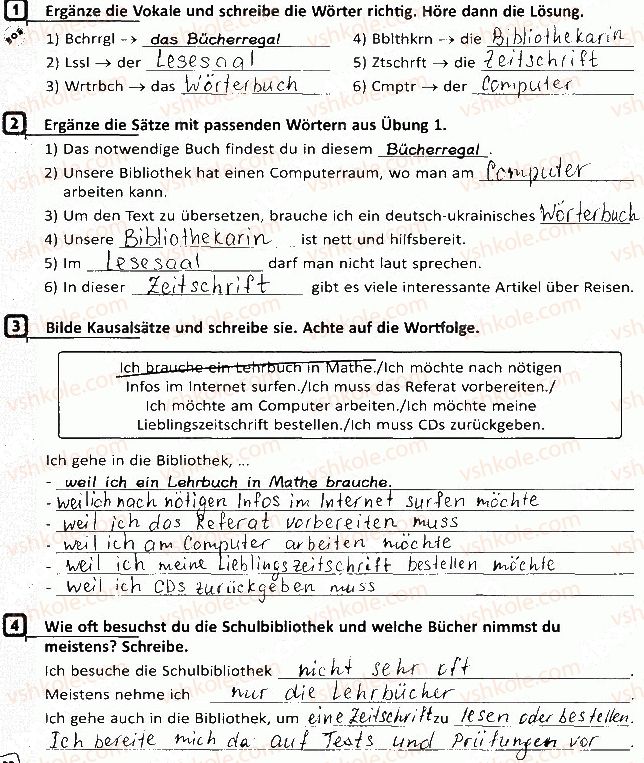 1 Ergänze die Vokale und schreibe die Wörter richtig. Höre dann die Lösung.
1) Bchrrgl → das Bücherregal 4) Bblthkrn → die Bibliothekarin
2) Lssl → der Lesesaal 5) Ztschrft → die Zeitschrift
3) Wrtrbch → das Wörterbuch 6) Cmptr → der Computer
2 Ergänze die Sätze mit passenden Wörtern aus Übung 1.
1) Das notwendige Buch findest du in diesem Bücherregal.
2) Unsere Bibliothek hat einen Computerraum, wo man am Computer
arbeiten kann.
3) Um den Text zu übersetzen, brauche ich ein deutsch-ukrainisches Wörterbuch
4) Unsere Bibliothekarin ist nett und hilfsbereit.
5) Im Lesesaal darf man nicht laut sprechen.
6) In dieser Zeitschrift gibt es viele interessante Artikel über Reisen.
3 Bilde Kausalsätze und schreibe sie. Achte auf die Wortfolge.
Ich brauche ein Lehrbuch in Mathe./Ich möchte nach nötigen
Infos im Internet surfen./Ich muss das Referat vorbereiten./
Ich möchte am Computer arbeiten./Ich möchte meine
Lieblingszeitschrift bestellen./Ich muss CDs zurückgeben.
Ich gehe in die Bibliothek, ...
- weil ich ein Lehrbuch in Mathe brauche.
- weil ich nach nötigen Infos im Internet surfen möchte
- weil ich das Referat vorbereiten muss
- weil ich am Computer arbeiten möchte
- weil ich meine Lieblingszeitschrift bestellen möchte
- weil ich CDs zurückgeben muss
4 Wie oft besuchst du die Schulbibliothek und welche Bücher nimmst du
meistens? Schreibe.
Ich besuche die Schulbibliothek nicht sehr oft
Meistens nehme ich nur die Lehrbücher
Ich gehe auch in die Bibliothek, um eine Zeitschrift zu lesen oder bestellen.
Ich bereite mich da auf Tests und Prüfungen vor